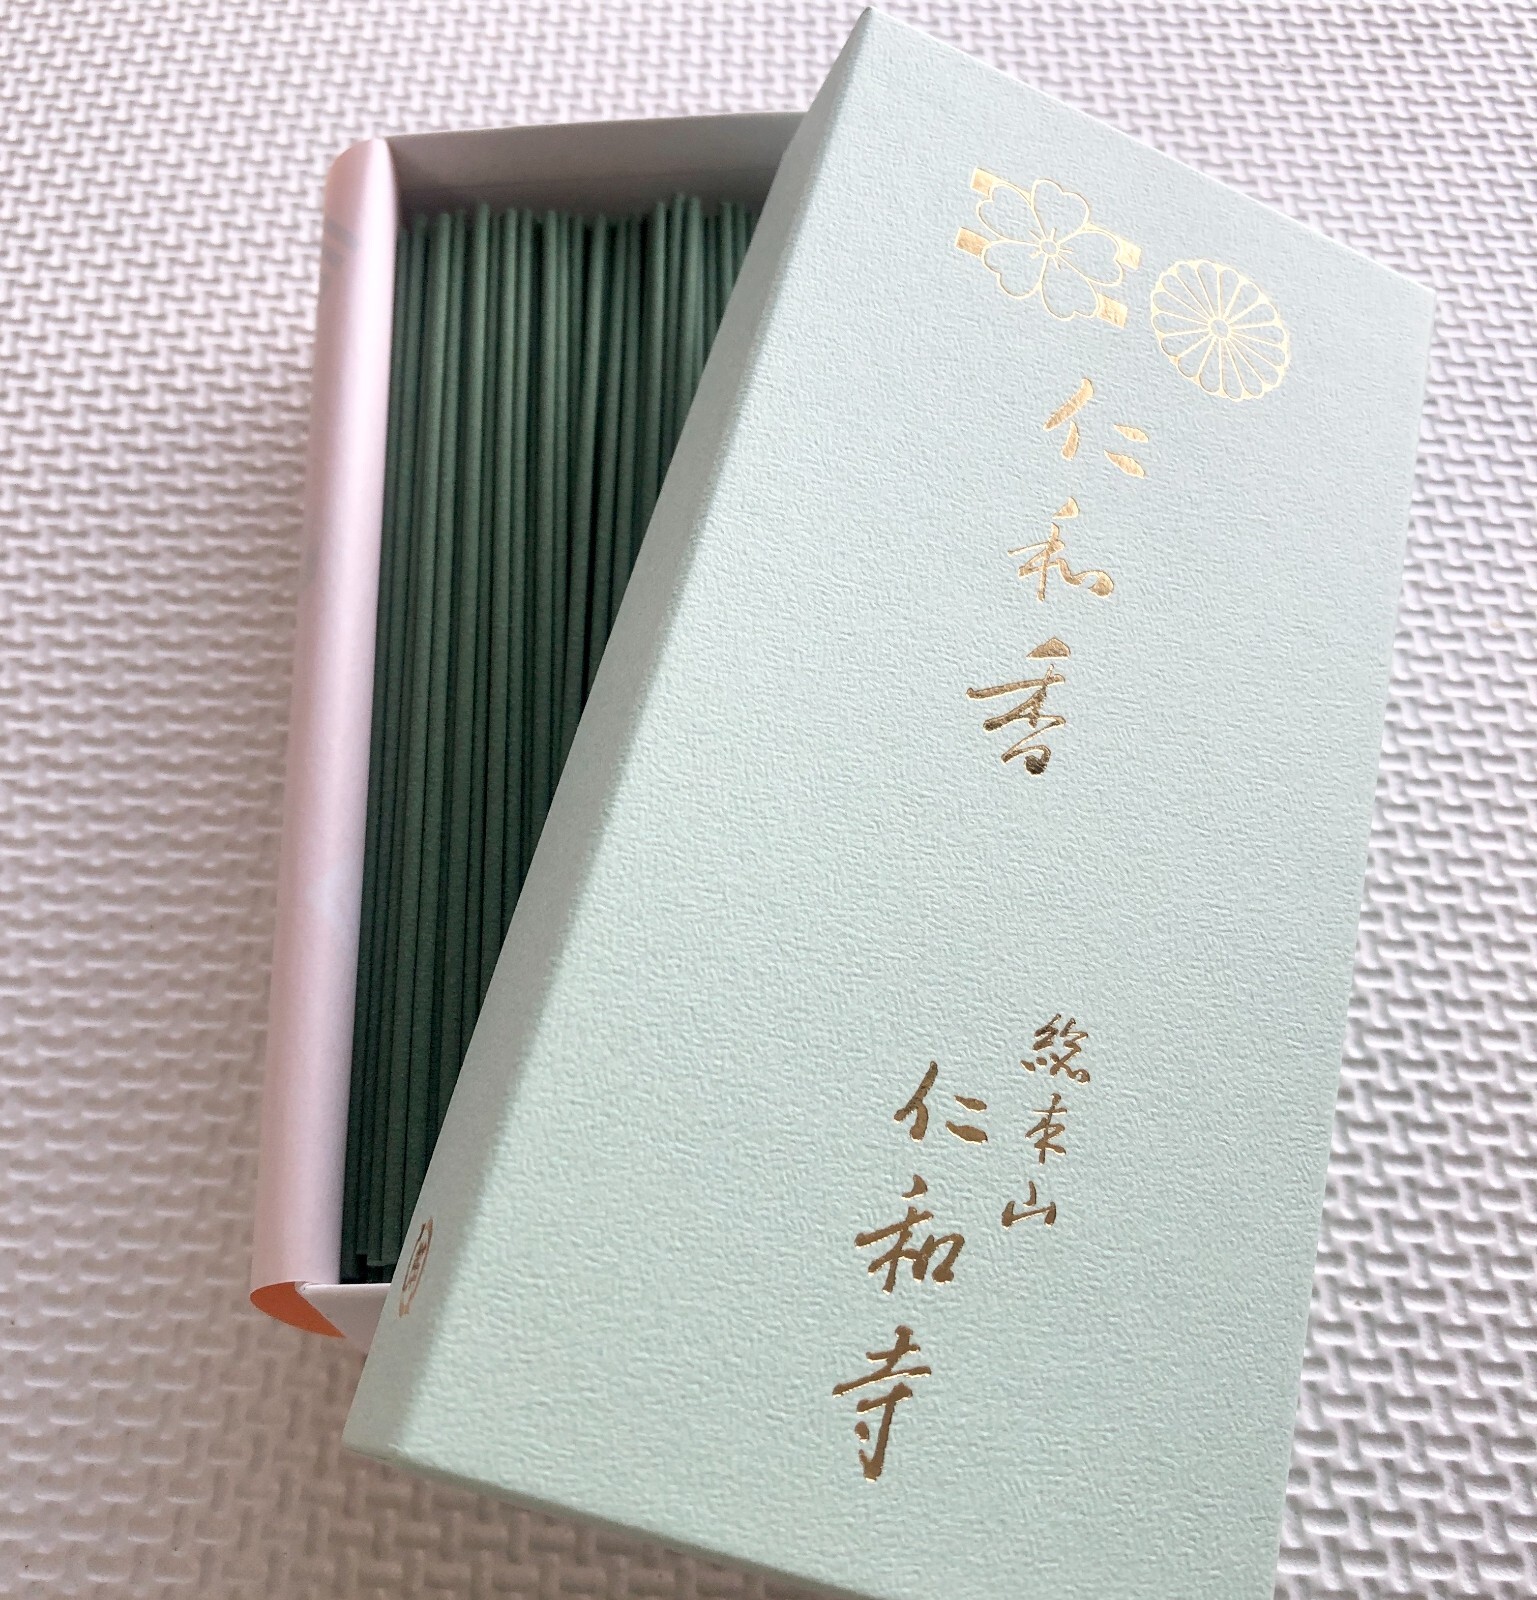 仁和香
総本山
仁和寺